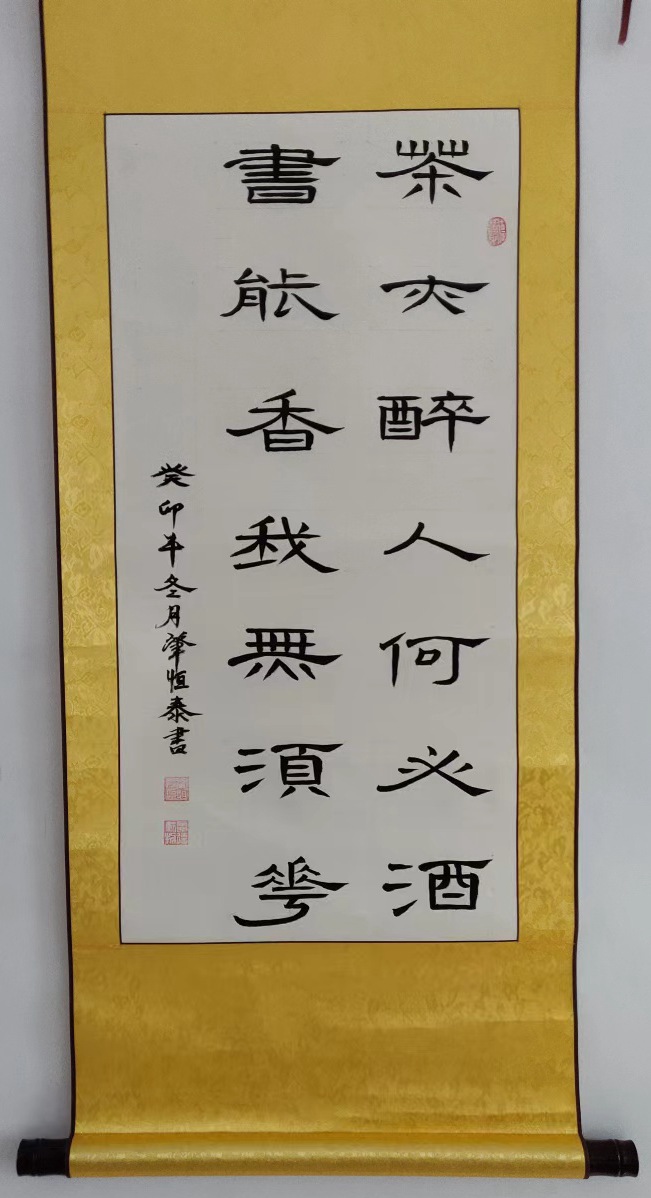 茶亦醉人何必酒
書能香我無湏華
癸卯年冬月肇恒泰書